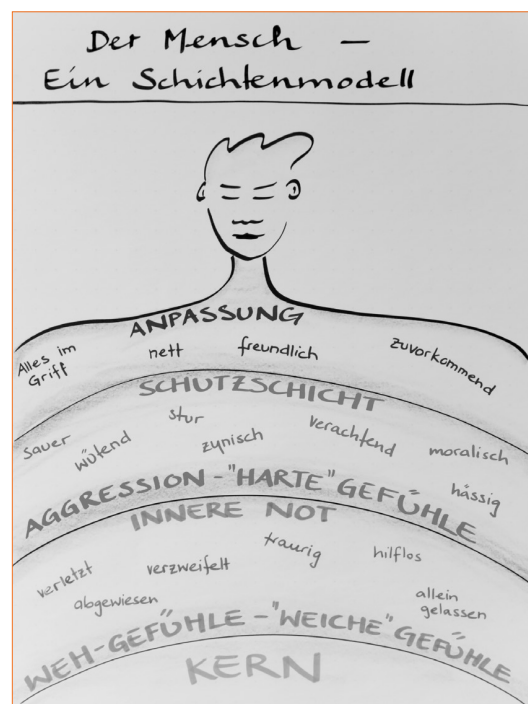 Der Mensch –
Ein Schichtenmodell
ANPASSUNG
Alles im
Griff
nett
freundlich
zuvorkommend
SCHUTZSCHICHT
sauer
wütend
stur
zynisch
verachtend
moralisch
hässig
AGGRESSION - "HARTE" GEFÜHLE
INNERE NOT
verletzt
abgewiesen
verzweifelt
traurig
hilflos
allein
gelassen
WEH-GEFÜHLE - "WEICHE" GEFÜHLE
KERN